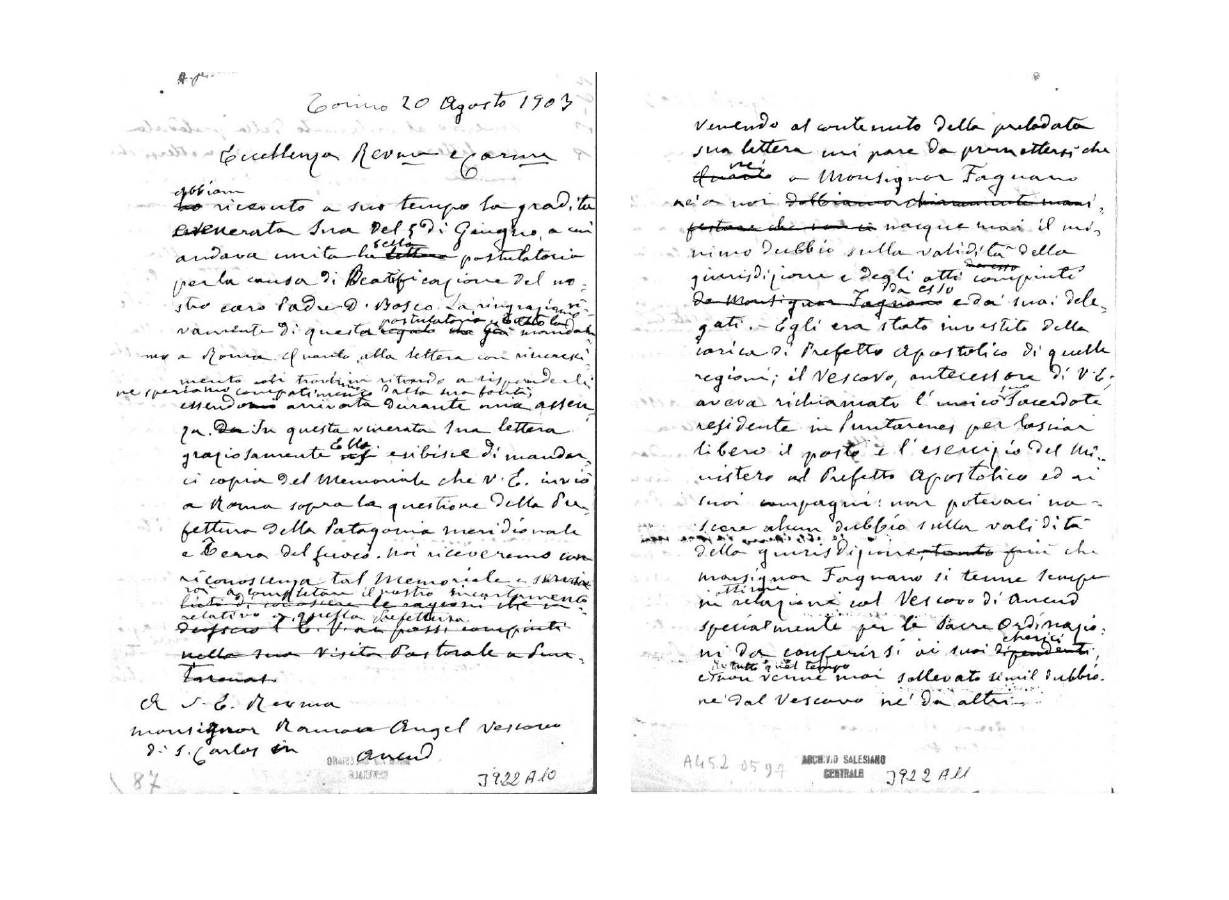 Torino 20 Agosto 1903
Eccellenza Revma e Carma
abbiam
ho ricevuto a suo tempo la gradita
e venerata Sua del 5 di Giugno, a cui
sella
andava unita la lettera postulatoria
per la causa di Beatificazione del no-
stro caro Padre D. Bosco. La ringrazio vi-
postulatoria
vamente di questa che già mandam-
mo a Roma. Quanto alla lettera con rincresci-
mento ritardo a risponderli
ne speriamo compatimento dalla sua bontà
essendo arrivata durante mia assen-
za. Da In questa venerata Sua lettera
Ella
graziosamente esibisce di mandar
ci copia del Memoriale che V. E. inviò
a Roma sopra la questione della Pre-
fettura della Patagonia meridionale
e Terra del fuoco. Noi riceveremo con
riconoscenza tal Memoriale e servirà
a completare il nostro incartamento
di conoscere le ragioni che in-
relativo a questa Prefettura
dussero l'E. V. ai passi compiuti
nella sua Visita Pastorale a Pun-
tarenas.
A S. E. Revma
monsignor Ramon Angel Vescovo
di S. Carlos in Ancud
87
J922 A10
venendo al contenuto della prelodata
sua lettera mi pare da premettersi che
nè
Quanto a Monsignor Fagnano
nè a noi dobbiamo chiaramente mani-
festare che nacque mai il mi-
nimo dubbio sulla validità della
giurisdizione e degli atti compiuti
da esso
da Monsignor Fagnano e da' suoi dele-
gati. - Egli era stato investito della
carica di Prefetto Apostolico di quelle
regioni; il Vescovo, antecessore di V. E.
suo
aveva richiamato l'unico Sacerdote
residente in Puntarenas per lasciar
libero il posto e l'esercizio del Mi-
nistero al Prefetto Apostolico ed ai
suoi compagni: non potevaci na-
scere alcun dubbio sulla validità
della giurisdizione, tanto più che
monsignor Fagnano si tenne sempre
ottime
in relazione col Vescovo di Ancud
specialmente per le Sacre Ordinazio-
chierici
ni da conferirsi ai suoi dipendenti,
in tutto quel tempo
e non venne mai sollevato simil dubbio
nè dal Vescovo nè da altri.
A452 0597
ARCHIVIO SALESIANO
CENTRALE
J922 A11